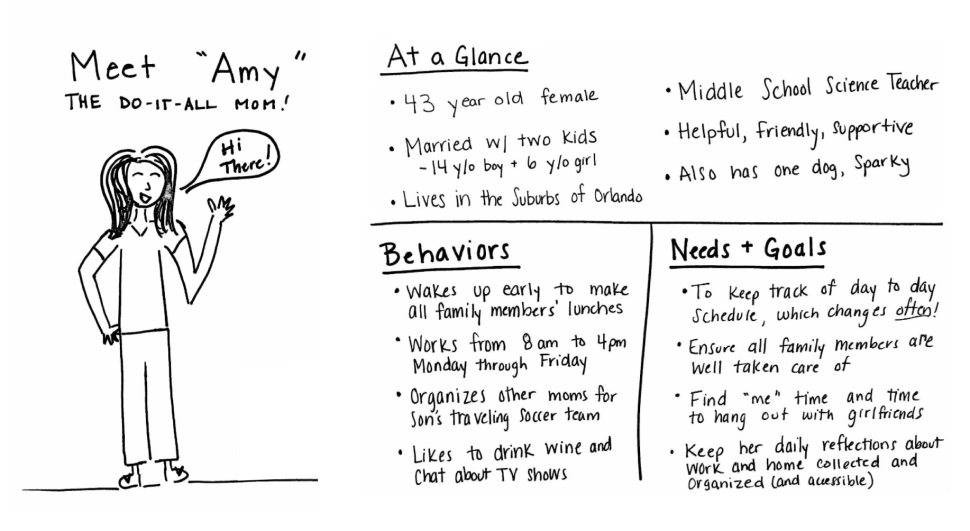 Meet "Amy"
THE DO-IT-ALL MOM!
Hi
There!
At a Glance
• 43 year old female
• Married w/ two kids
- 14 y/o boy + 6 y/o girl
• Lives in the Suburbs of Orlando
• Middle School Science Teacher
• Helpful, Friendly, Supportive
• Also has one dog, Sparky
Behaviors
• Wakes up early to make
all family members' lunches
• Works from 8am to 4pm
Monday through Friday
• Organizes other moms for
Son's traveling Soccer team
• Likes to drink wine and
Chat about TV shows
Needs + Goals
• To keep track of day to day
Schedule, which changes often!
• Ensure all family members are
well taken care of
• Find "me" time and time
to hang out with girlfriends
• Keep her daily reflections about
work and home collected and
Organized (and accessible)